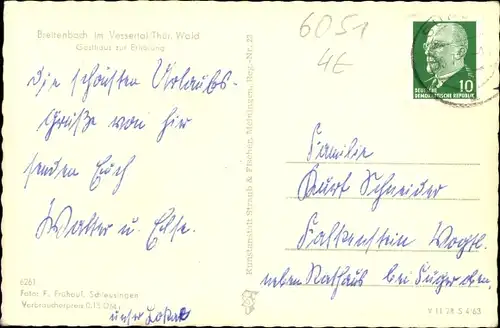 Breitenbach im Vessertal/Thür. Wald
Gasthaus zur Erholung
6051
4E
DEUTSCHE
DEMOKRATISCHE REPUBLIK
10
Die schönsten Urlaubs-
Grüße von hier
senden Euch
Walter u. Else.
Kunstanstalt Straub & Fischer, Meiningen, Reg.-Nr. 22
Familie
Kurt Schneider
Falkenstein Vogtl.
neben Rathaus bei Singer oben.
6261
Foto: F. Frühauf, Schleusingen
Verbraucherpreis 0,15 DM
unser Lokal
V 11 28 S 4/63